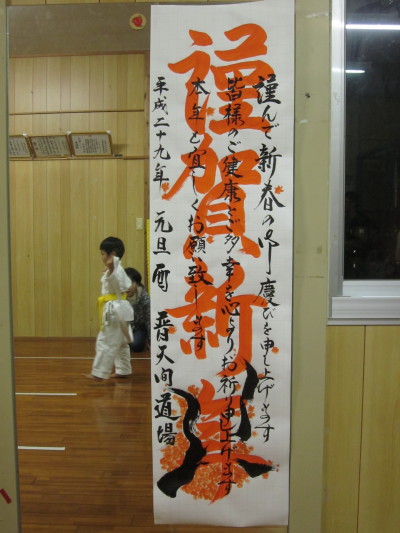 謹賀新年
謹んで新春の御慶びを申し上げます
皆様のご健康とご多幸を心よりお祈り申し上げます
本年も宜しくお願い致します
平成二十九年 元旦 酉 晋天間道場